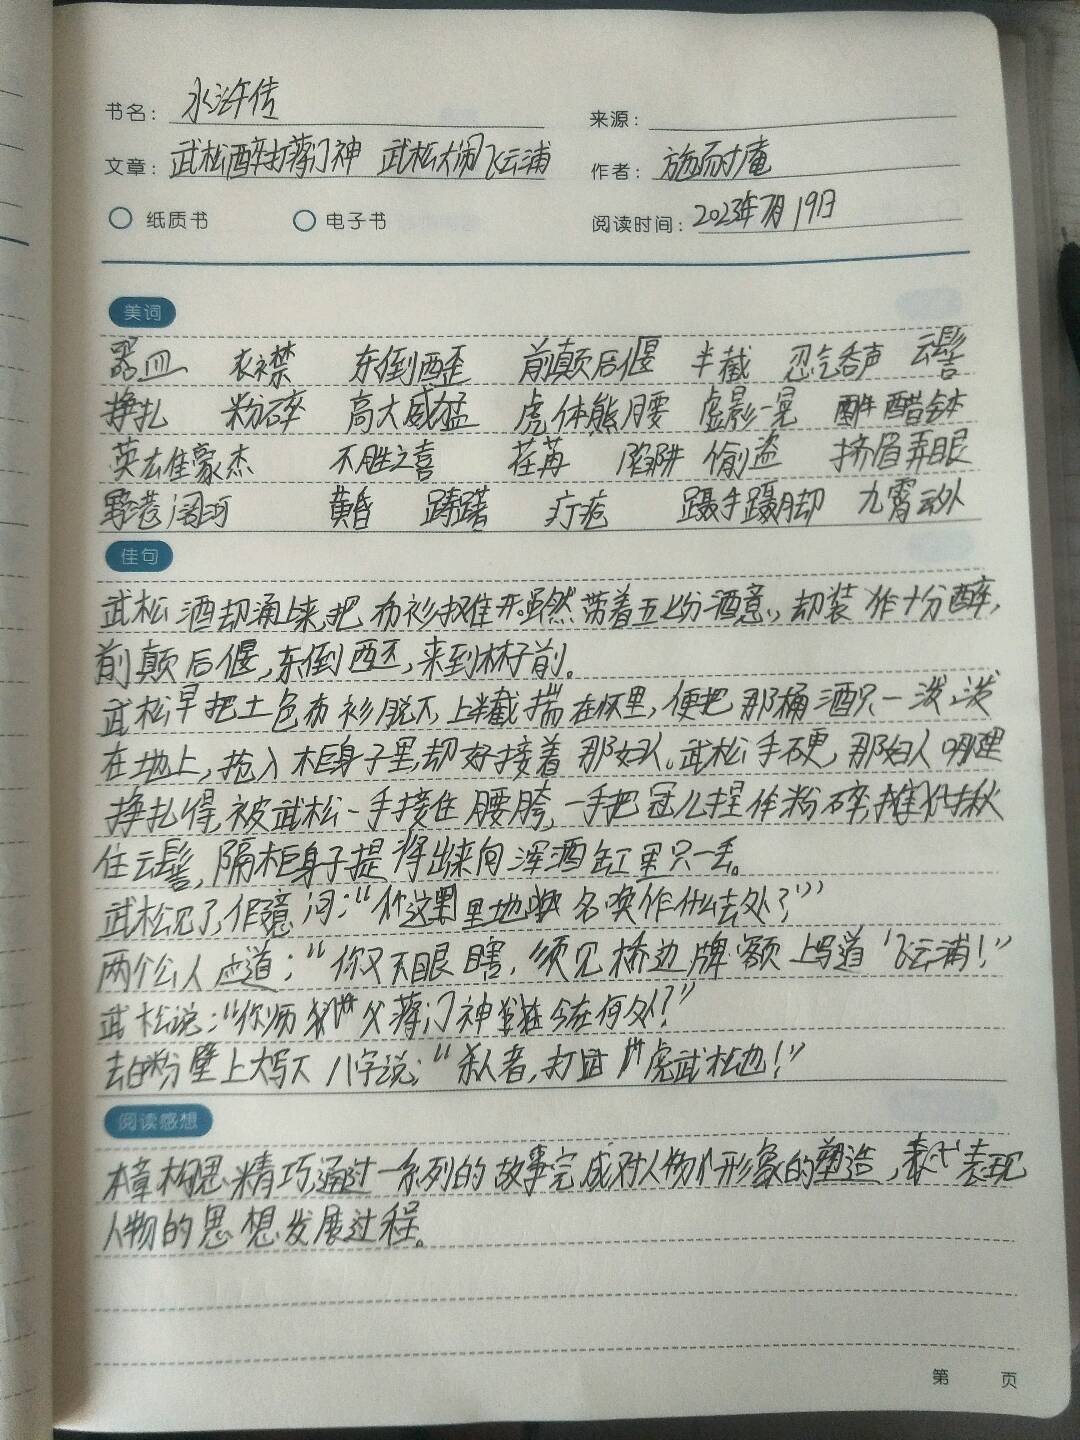 书名： 水浒传
来源：
文章： 武松醉打蒋门神 武松大闹飞云浦
作者： 施耐庵
纸质书 电子书 阅读时间： 2023年7月19日
美词
器皿 衣襟 东倒西歪 前颠后偃 半截 忍气吞声 云髻
挣扎 粉碎 高大威猛 虎体熊腰 虚影一晃 醋钵
英雄豪杰 不胜之喜 荏苒 陷阱 偷盗 挤眉弄眼
野港阔河 黄昏 踌躇 疔疮 蹑手蹑脚 九霄云外
佳句
武松酒却涌上来,把布衫摊开。虽然带着五七分酒意,却装作十分醉,
前颠后偃,东倒西歪,来到林子前。
武松早把土色布衫脱下,上半截揣在怀里,便把那桶酒只一泼,泼
在地上,抢入柜身子里,却好接着那妇人。武松手硬,那妇人哪里
挣扎得,被武松一手接住腰胯,一手把冠儿捏作粉碎,揪
住云髻,隔柜身子提将出来向浑酒缸里只一丢。
武松见了,作意问:“你这里地名唤作什么去处?”
两个公人应道:“你又不眼瞎,须见桥边牌额上写道‘飞云浦!”
武松说:“你师父蒋门神今在何处?”
去白粉壁上大写下八字说:“杀人者,打虎武松也!”
阅读感想
本章构思精巧,通过一系列的故事完成对人物形象的塑造,表现
人物的思想发展过程。
第 页